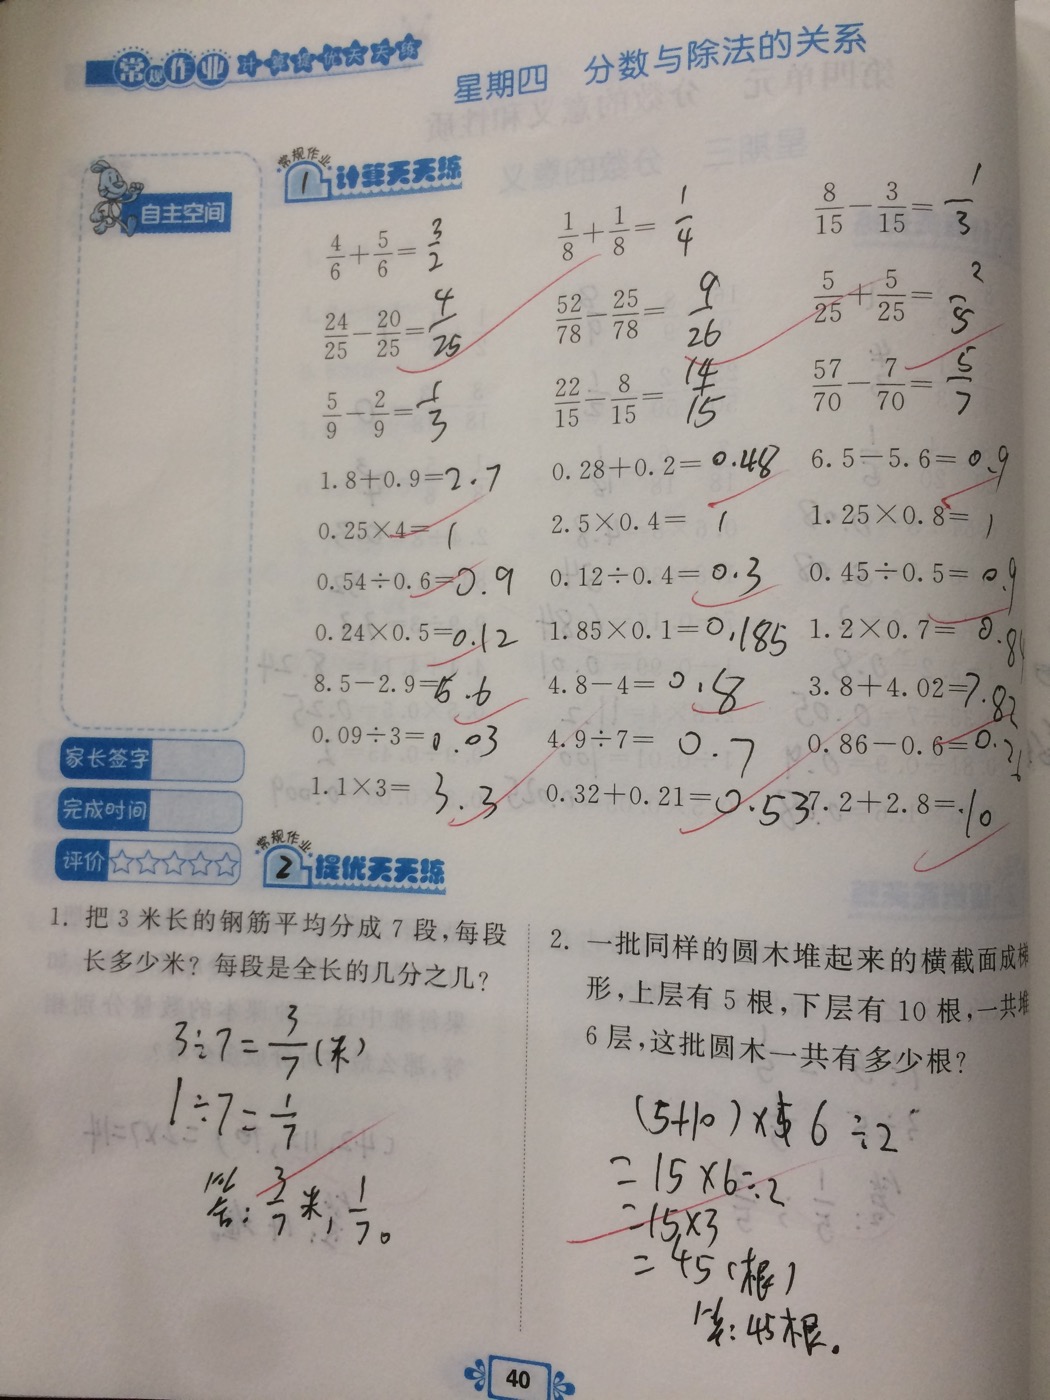 常规作业 计算提优天天练
星期四 分数与除法的关系
常规作业
1 计算天天练
自主空间
4/6+5/6=3/2 1/8+1/8=1/4 8/15-3/15=1/3
24/25-20/25=4/25 52/78-25/78=9/26 5/25+5/25=2/5
5/9-2/9=1/3 22/15-8/15=14/15 57/70-7/70=5/7
1.8+0.9=2.7 0.28+0.2=0.48 6.5-5.6=0.9
0.25×4=1 2.5×0.4=1 1.25×0.8=1
0.54÷0.6=0.9 0.12÷0.4=0.3 0.45÷0.5=0.9
0.24×0.5=0.12 1.85×0.1=0.185 1.2×0.7=0.84
8.5-2.9=5.6 4.8-4=0.8 3.8+4.02=7.82
0.09÷3=0.03 4.9÷7=0.7 0.86-0.6=0.26
1.1×3=3.3 0.32+0.21=0.53 7.2+2.8=10
家长签字
完成时间
评价
常规作业
2 提优天天练
1. 把 3 米长的钢筋平均分成 7 段,每段
长多少米? 每段是全长的几分之几?
3÷7=3/7(米)
1÷7=1/7
答:3/7米,1/7。
2. 一批同样的圆木堆起来的横截面成梯
形,上层有 5 根,下层有 10 根,一共堆
6 层,这批圆木一共有多少根?
(5+10)×6÷2
=15×6÷2
=15×3
=45(根)
答:45根。
40